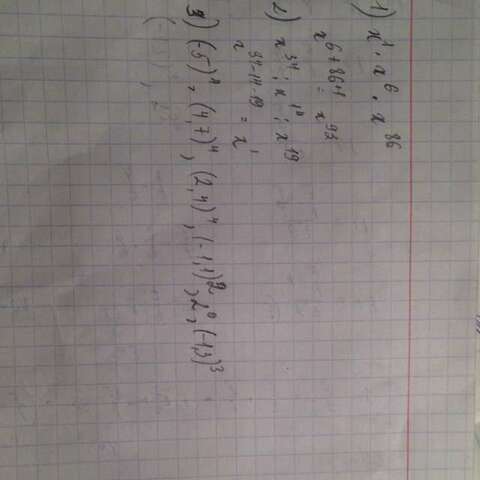 1) x¹ · x⁶ · x⁸⁶
x⁶⁺⁸⁶⁺¹ = x⁹³
2) x³⁴ : x¹⁴ : x¹⁹
x³⁴⁻¹⁴⁻¹⁹ = x¹
3) (-5)⁴, (4,7)⁴, (2,4)⁴, (-1,1)², 2⁰, (-1,3)³